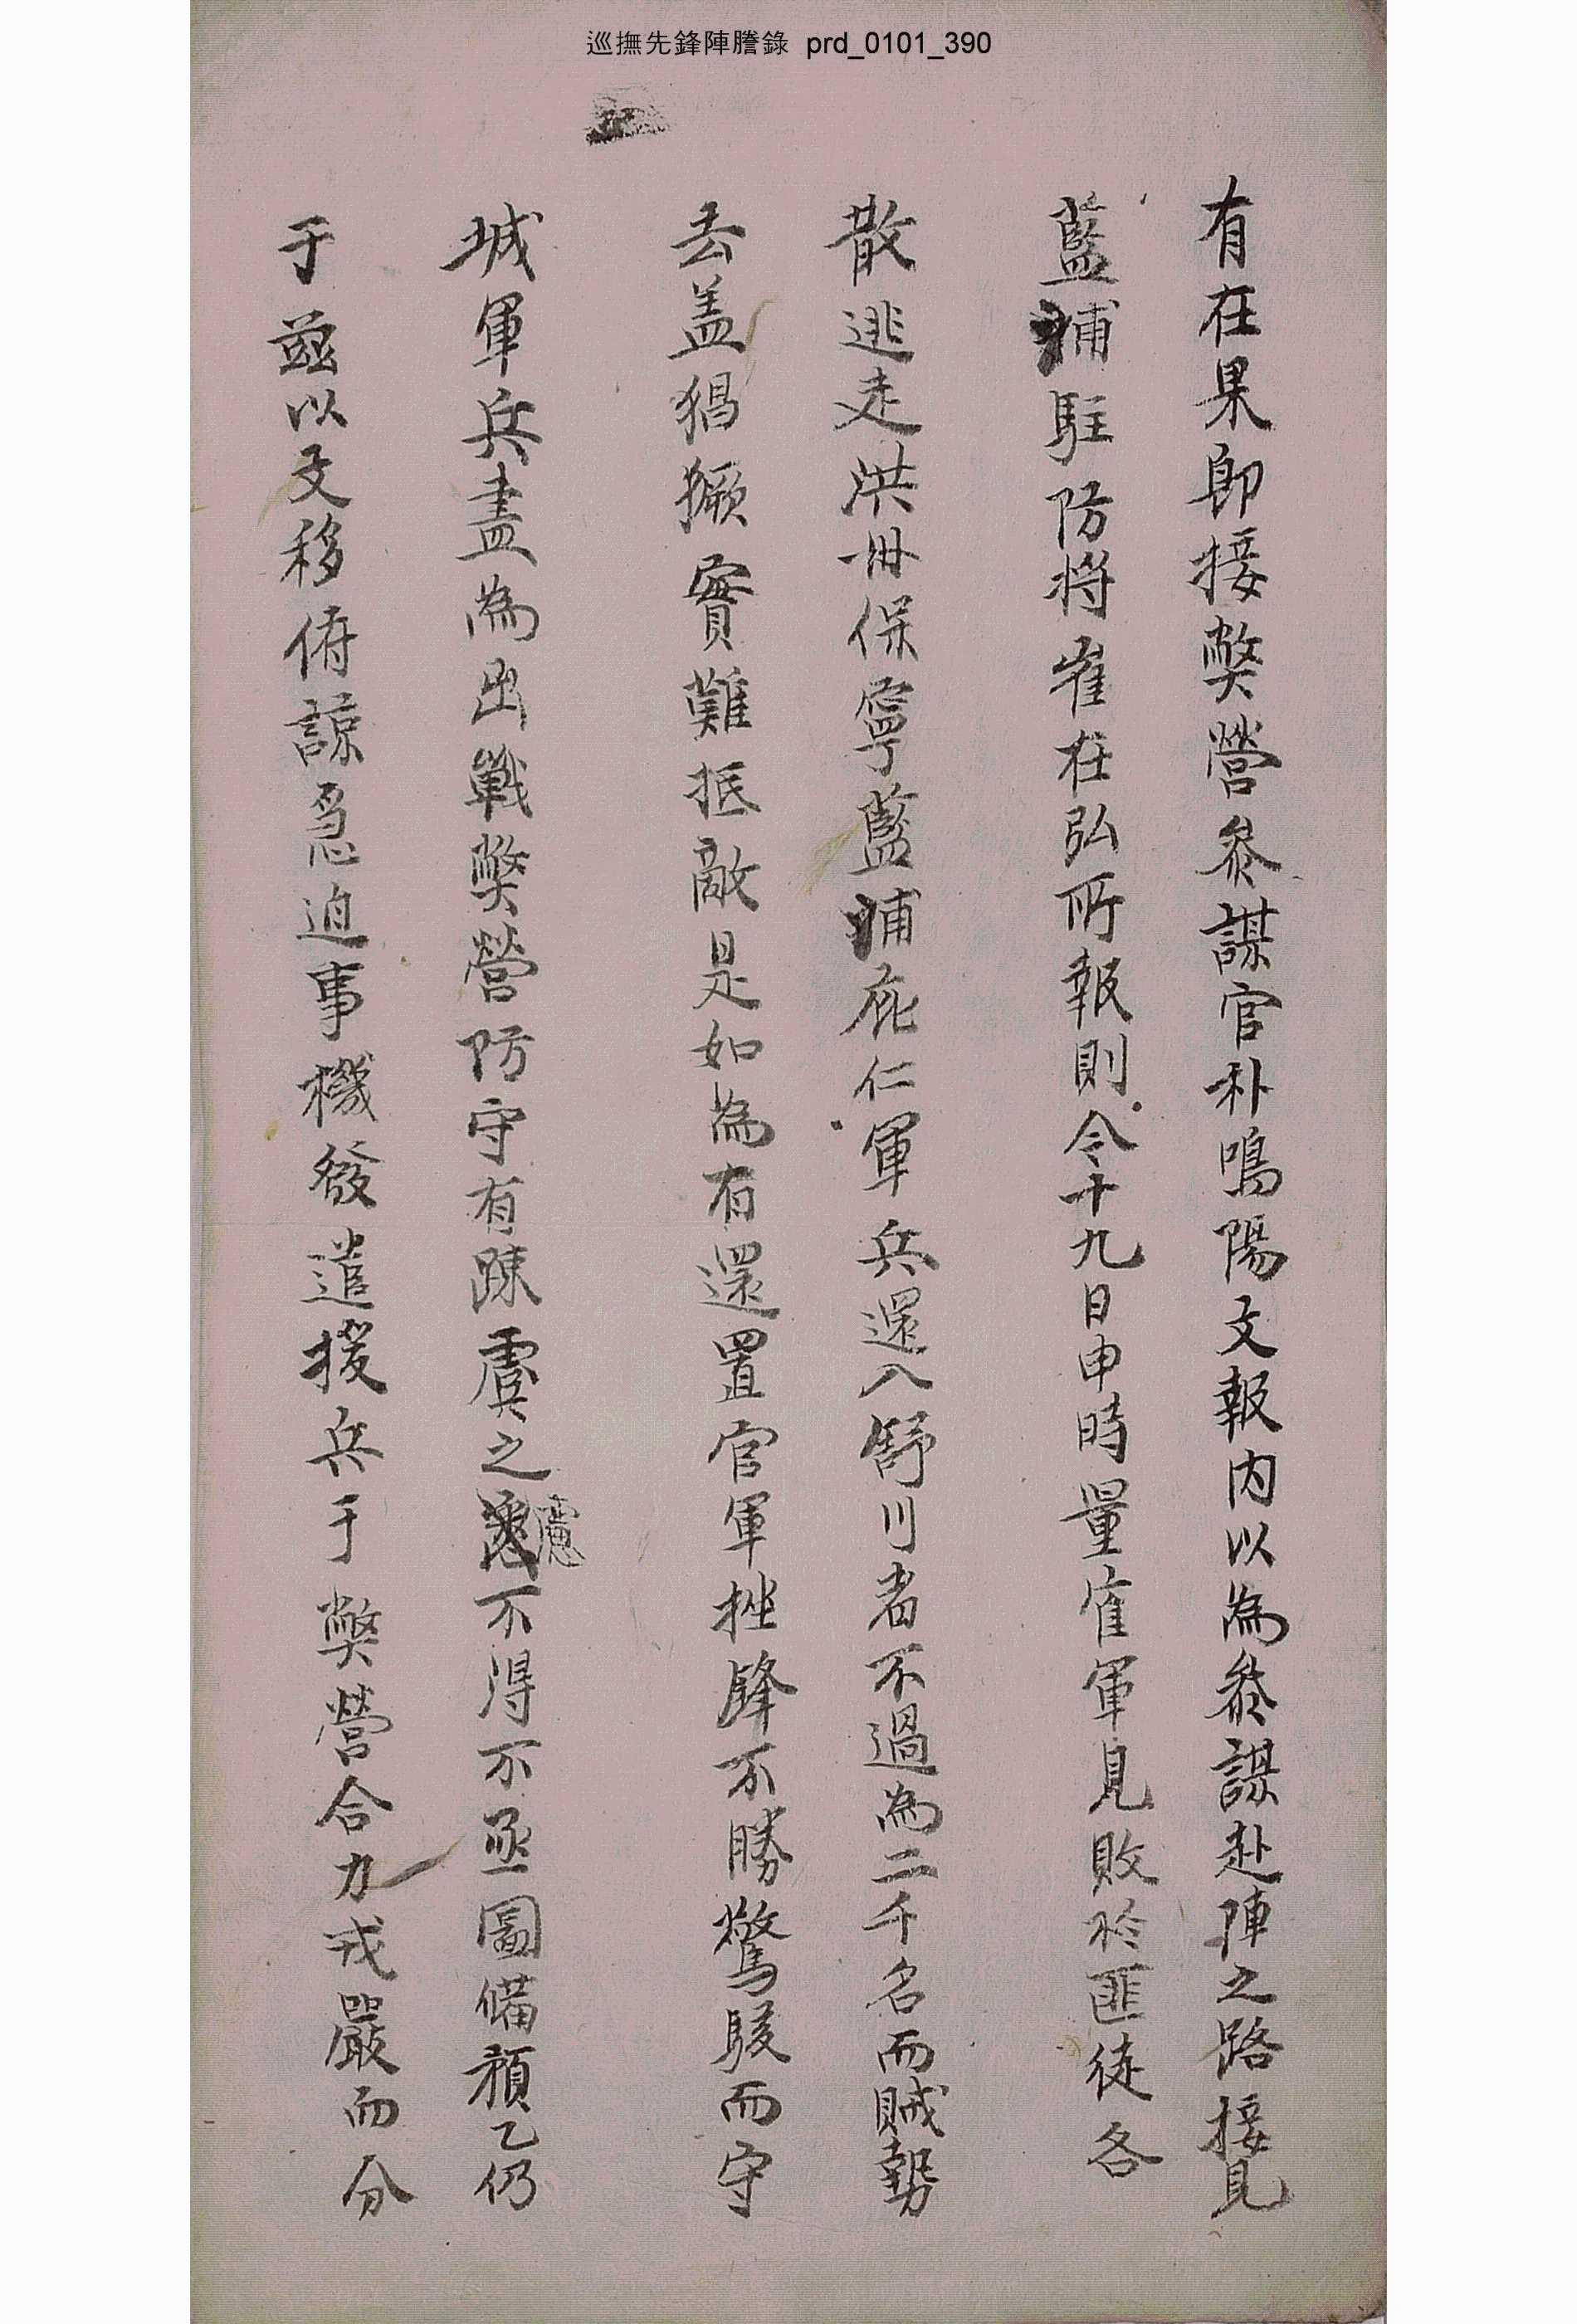 巡撫先鋒陣謄錄 prd_0101_390
有在果卽接弊營參謀官朴鳴陽文報內以爲參謀赴陣之路接見
藍浦駐防將崔在弘所報則今十九日申時量官軍見敗於匪徒各
散逃走洪州保寧藍浦庇仁軍兵還入舒川者不過爲二千名而賊勢
去盖猖獗實難抵敵是如爲有還置官軍挫鋒不勝驚駭而守
城軍兵盡爲出戰弊營防守有踈虞之慮不得不亟圖備預乙仍
于玆以文移俯諒急迫事機發遣援兵于弊營合力戎嚴而分